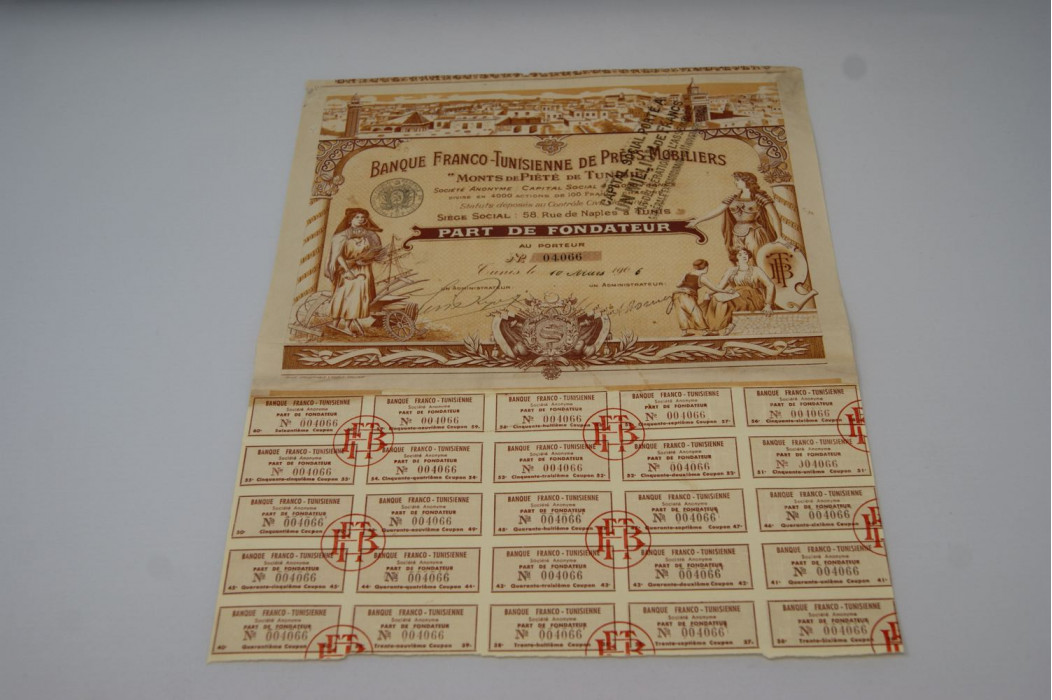 BANQUE FRANCO-TUNISIENNE DE PRÊTS MOBILIERS
"MONTS DE PIÉTÉ DE
SOCIÉTÉ ANONYME CAPITAL SOCIAL
DIVISÉ EN 4000 ACTIONS DE 100 FRANCS
Statuts déposés au Contrôle
SIÈGE SOCIAL : 58, RUE DE NAPLES À TUNIS
CAPITAL SOCIAL PORTÉ A
UN MILLION DE FRANCS
PART DE FONDATEUR
AU PORTEUR
04066
Tunis le 10 Mars 1906
UN ADMINISTRATEUR: UN ADMINISTRATEUR:
FTB
BANQUE FRANCO-TUNISIENNE BANQUE FRANCO-TUNISIENNE BANQUE FRANCO-TUNISIENNE BANQUE FRANCO-TUNISIENNE BANQUE FRANCO-TUNISIENNE
Société Anonyme Société Anonyme Société Anonyme Société Anonyme Société Anonyme
PART DE FONDATEUR PART DE FONDATEUR PART DE FONDATEUR PART DE FONDATEUR PART DE FONDATEUR
Nº 004066 Nº 004066 Nº 004066 Nº 004066 Nº 004066
60e Soixantième Coupon Cinquante-neuvième Coupon 59e 58e Cinquante-huitième Coupon Cinquante-septième Coupon 57e 56e Cinquante-sixième Coupon
BANQUE FRANCO-TUNISIENNE BANQUE FRANCO-TUNISIENNE BANQUE FRANCO-TUNISIENNE BANQUE FRANCO-TUNISIENNE BANQUE FRANCO-TUNISIENNE
Société Anonyme Société Anonyme Société Anonyme Société Anonyme Société Anonyme
PART DE FONDATEUR PART DE FONDATEUR PART DE FONDATEUR PART DE FONDATEUR PART DE FONDATEUR
Nº 004066 Nº 004066 Nº 004066 Nº 004066 Nº 004066
55e Cinquante-cinquième Coupon 55e 54e Cinquante-quatrième Coupon 54e 53e Cinquante-troisième Coupon 53e 52e Cinquante-deuxième Coupon 52e 51e Cinquante-unième Coupon 51e
BANQUE FRANCO-TUNISIENNE BANQUE FRANCO-TUNISIENNE BANQUE FRANCO-TUNISIENNE BANQUE FRANCO-TUNISIENNE BANQUE FRANCO-TUNISIENNE
Société Anonyme Société Anonyme Société Anonyme Société Anonyme Société Anonyme
PART DE FONDATEUR PART DE FONDATEUR PART DE FONDATEUR PART DE FONDATEUR PART DE FONDATEUR
Nº 004066 Nº 004066 Nº 004066 Nº 004066 Nº 004066
50e Cinquantième Coupon Quarante-neuvième Coupon 49e 48e Quarante-huitième Coupon Quarante-septième Coupon 47e 46e Quarante-sixième Coupon
BANQUE FRANCO-TUNISIENNE BANQUE FRANCO-TUNISIENNE BANQUE FRANCO-TUNISIENNE BANQUE FRANCO-TUNISIENNE BANQUE FRANCO-TUNISIENNE
Société Anonyme Société Anonyme Société Anonyme Société Anonyme Société Anonyme
PART DE FONDATEUR PART DE FONDATEUR PART DE FONDATEUR PART DE FONDATEUR PART DE FONDATEUR
Nº 004066 Nº 004066 Nº 004066 Nº 004066 Nº 004066
45e Quarante-cinquième Coupon 45e 44e Quarante-quatrième Coupon 44e 43e Quarante-troisième Coupon 43e 42e Quarante-deuxième Coupon 42e 41e Quarante-unième Coupon 41e
BANQUE FRANCO-TUNISIENNE BANQUE FRANCO-TUNISIENNE BANQUE FRANCO-TUNISIENNE BANQUE FRANCO-TUNISIENNE BANQUE FRANCO-TUNISIENNE
Société Anonyme Société Anonyme Société Anonyme Société Anonyme Société Anonyme
PART DE FONDATEUR PART DE FONDATEUR PART DE FONDATEUR PART DE FONDATEUR PART DE FONDATEUR
Nº 004066 Nº 004066 Nº 004066 Nº 004066 Nº 004066
40e Quarantième Coupon Trente-neuvième Coupon 39e 38e Trente-huitième Coupon Trente-septième Coupon 37e 36e Trente-sixième Coupon